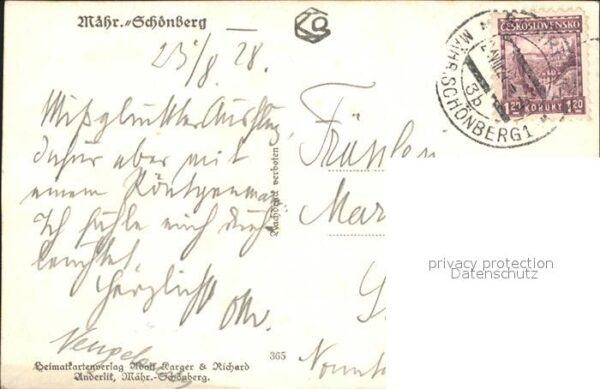 Mähr.-Schönberg
25/8. 28.
Mißglückter Ausflug,
dafür aber mit
einem Röntgenman
Ich fühle mich durch
leuchtet.
Herzlichst
Nachdruck verboten
Fräulein
Mar
Heimatkartenverlag Adolf Karger & Richard
Anderlik, Mähr.-Schönberg.
365
ČESKOSLOVENSKO
1.20 KORUNY 1.20
MÄHR.SCHÖNBERG 1
3b
privacy protection
Datenschutz